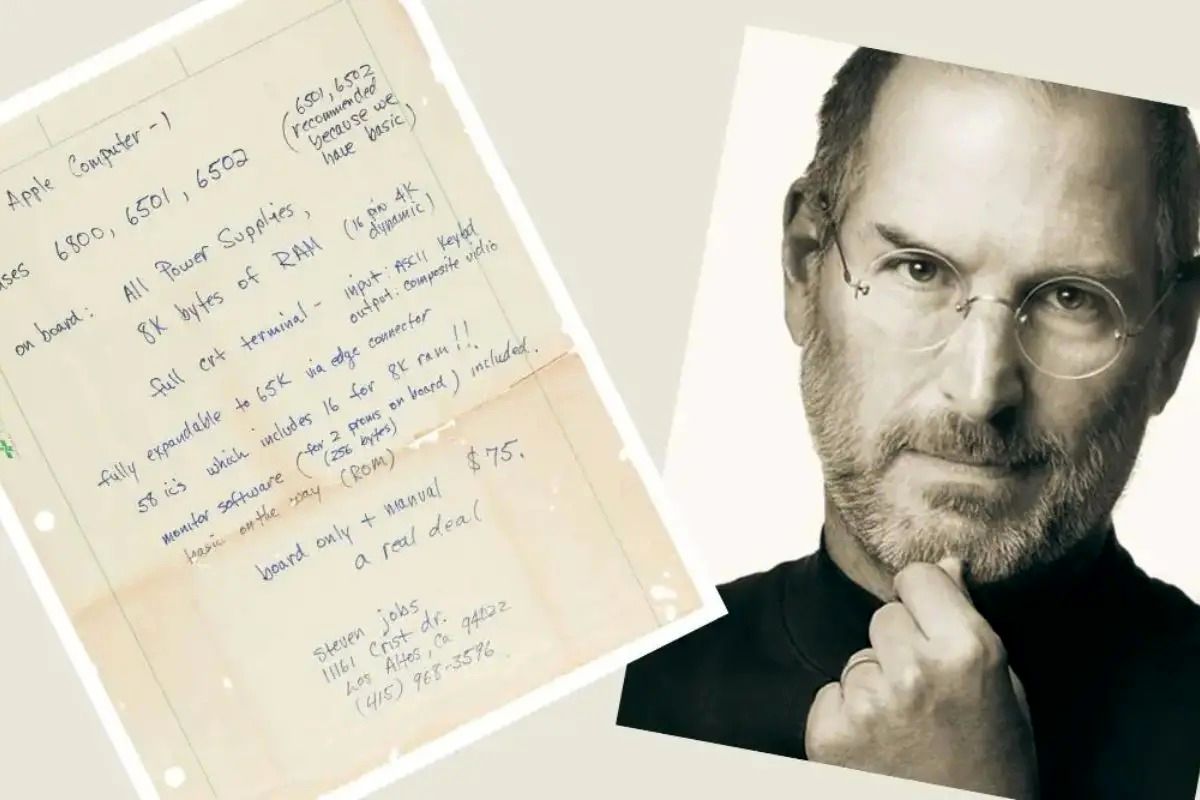 Apple Computer-1
uses 6800, 6501, 6502
(6501, 6502
recommended
because we
have basic)
on board: All Power Supplies,
8K bytes of RAM (16 pin 4K
dynamic)
full crt terminal- input: ASCII Keybd
output: composite vidio
fully expandable to 65K via edge connector
58 ic's which includes 16 for 8K ram!!
monitor software (for 2 proms on board) included.
(256 bytes)
basic on the way (ROM)
board only + manual $75.
a real deal
steven jobs
11161 Crist dr.
Los Altos, Ca 94022
(415) 968-3596